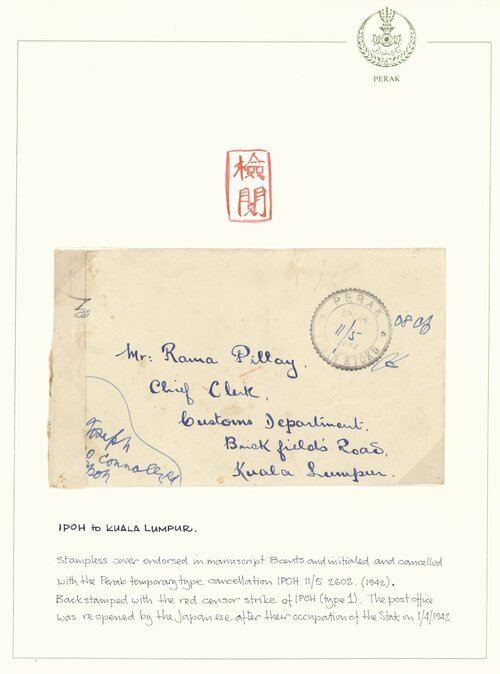 PERAK
檢
閲
PERAK
11/5
KYOKU
08 cts
Mr: Rama Pillay,
Chief Clerk,
Customs Department.
Brickfields Road,
Kuala Lumpur.
Joseph
IPOH to KUALA LUMPUR.
Stampless cover endorsed in manuscript 8cents and initialed and cancelled
with the Perak temporary type cancellation IPOH 11/5 2602. (1942).
Backstamped with the red censor strike of IPOH (type 1). The post office
was reopened by the Japanese after their occupation of the State on 1/4/1942.